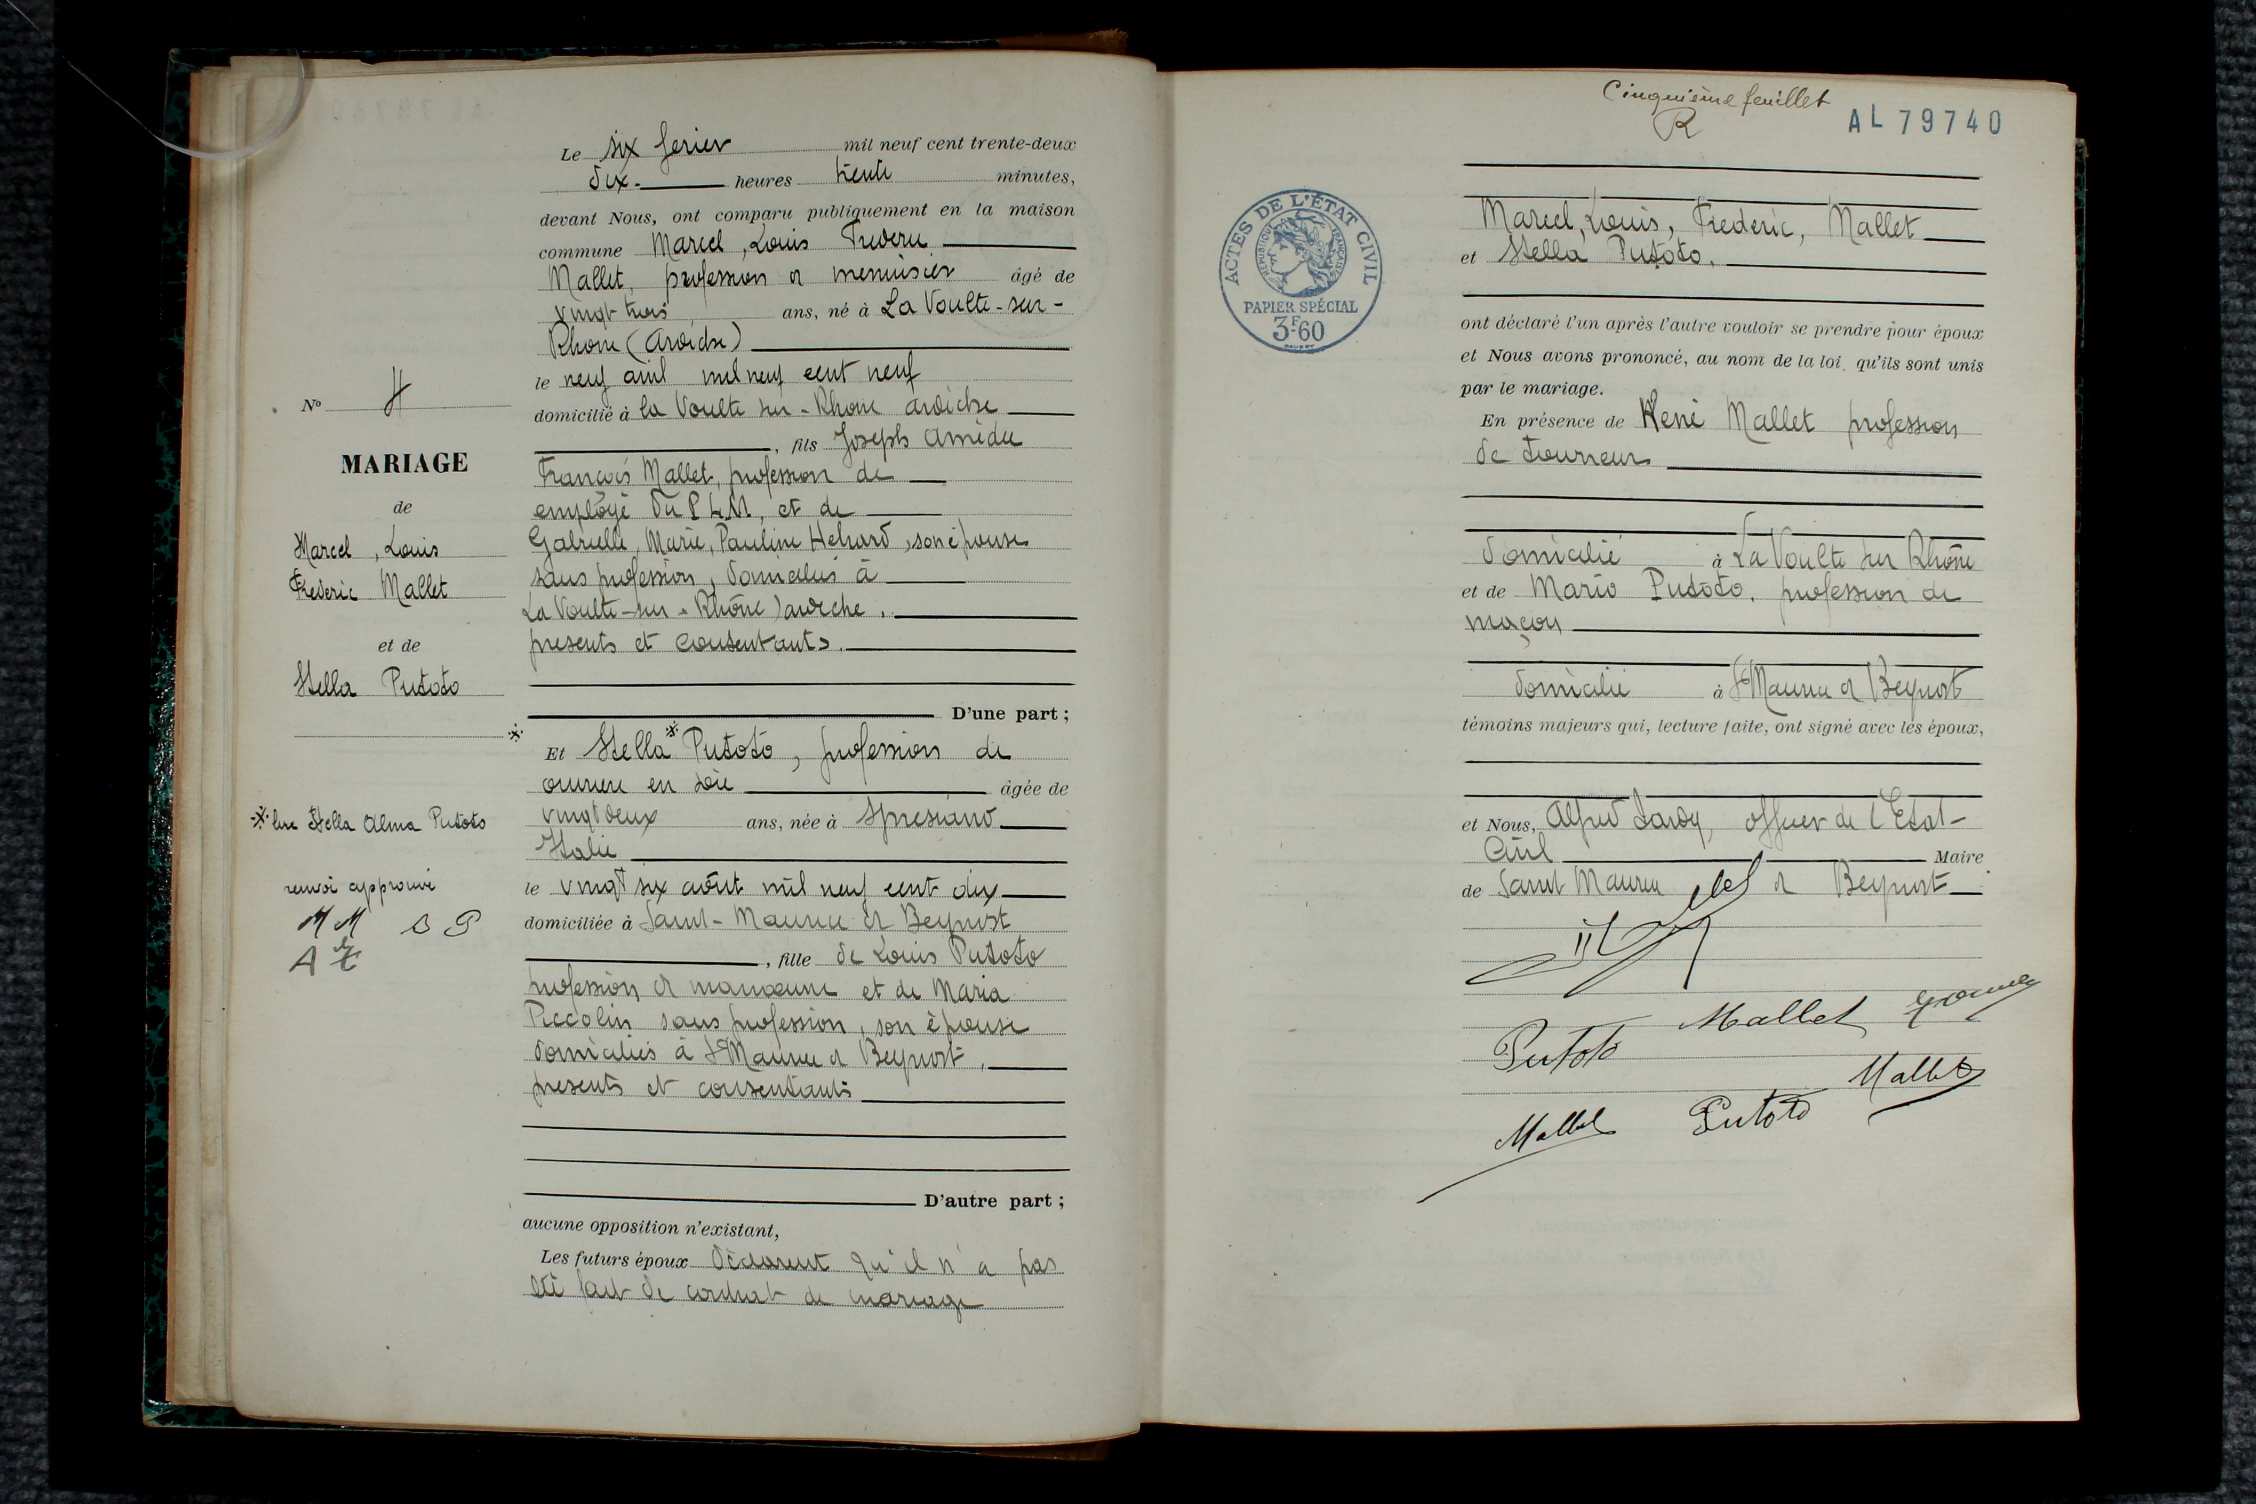 Le six ferier mil neuf cent trente-deux
dix heures trente minutes,
devant Nous, ont comparu publiquement en la maison
commune Marcel, Louis Frederic
Mallet, profession de menuisier âgé de
vingt trois ans, né à La Voulte-sur-
Rhone (Ardèche)
le neuf avril mil neuf cent neuf
domicilié à la Voulte sur-Rhone ardèche
, fils Joseph Amédée
François Mallet, profession de
employé du P L M, et de
Gabrielle, Marie, Pauline, son épouse
sans profession, domiciliés à
La Voulte-sur-Rhône) ardèche.
presents et consentants.
D'une part ;
Et Stella Putoto, profession de
ouvriere en soie âgée de
vingt deux ans, née à Spresiano
Italie
le vingt six août mil neuf cent dix
domiciliée à Saint-Maurice de Beynost
, fille de Louis Putoto
profession de manoeuvre et de Maria
Piccolin sans profession, son épouse
domiciliés à St Maurice de Beynost,
presents et consentants
D'autre part ;
aucune opposition n'existant,
Les futurs époux déclarent qu'il n'a pas
été fait de contrat de mariage
No 4
MARIAGE
de
Marcel, Louis
Frederic Mallet
et de
Stella Putoto
lire Stella Alma Putoto
renvoi approuvé
M M S P
Cinquième feuillet
R
AL 79740
ACTES DE L'ÉTAT CIVIL
RÉPUBLIQUE FRANÇAISE
PAPIER SPÉCIAL
3F60
Marcel, Louis, Frederic, Mallet
et Stella Putoto.
ont déclaré l'un après l'autre vouloir se prendre pour époux
et Nous avons prononcé, au nom de la loi, qu'ils sont unis
par le mariage.
En présence de René Mallet profession
de Tourneur
domicilié à La Voulte sur Rhône
et de Mario Putoto. profession de
maçon
domicilié à St Maurice de Beynost
témoins majeurs qui, lecture faite, ont signé avec les époux,
et Nous, Alfred officier de l'Etat-
Civil Maire
de Saint Maurice de Beynost
Putoto Mallet
Mallet Putoto Mallet